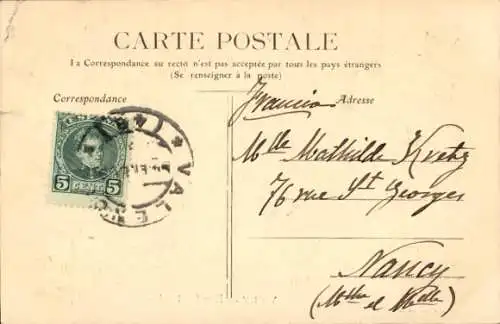 CARTE POSTALE
La Correspondance au recto n'est pas acceptée par tous les pays étrangers
(Se renseigner à la poste)
Correspondance
Adresse
Francia
Mlle Mathilde Kretz
76 rue St Georges
Nancy
(Mthe et Mlle)
5 CENTS 5
VALEN